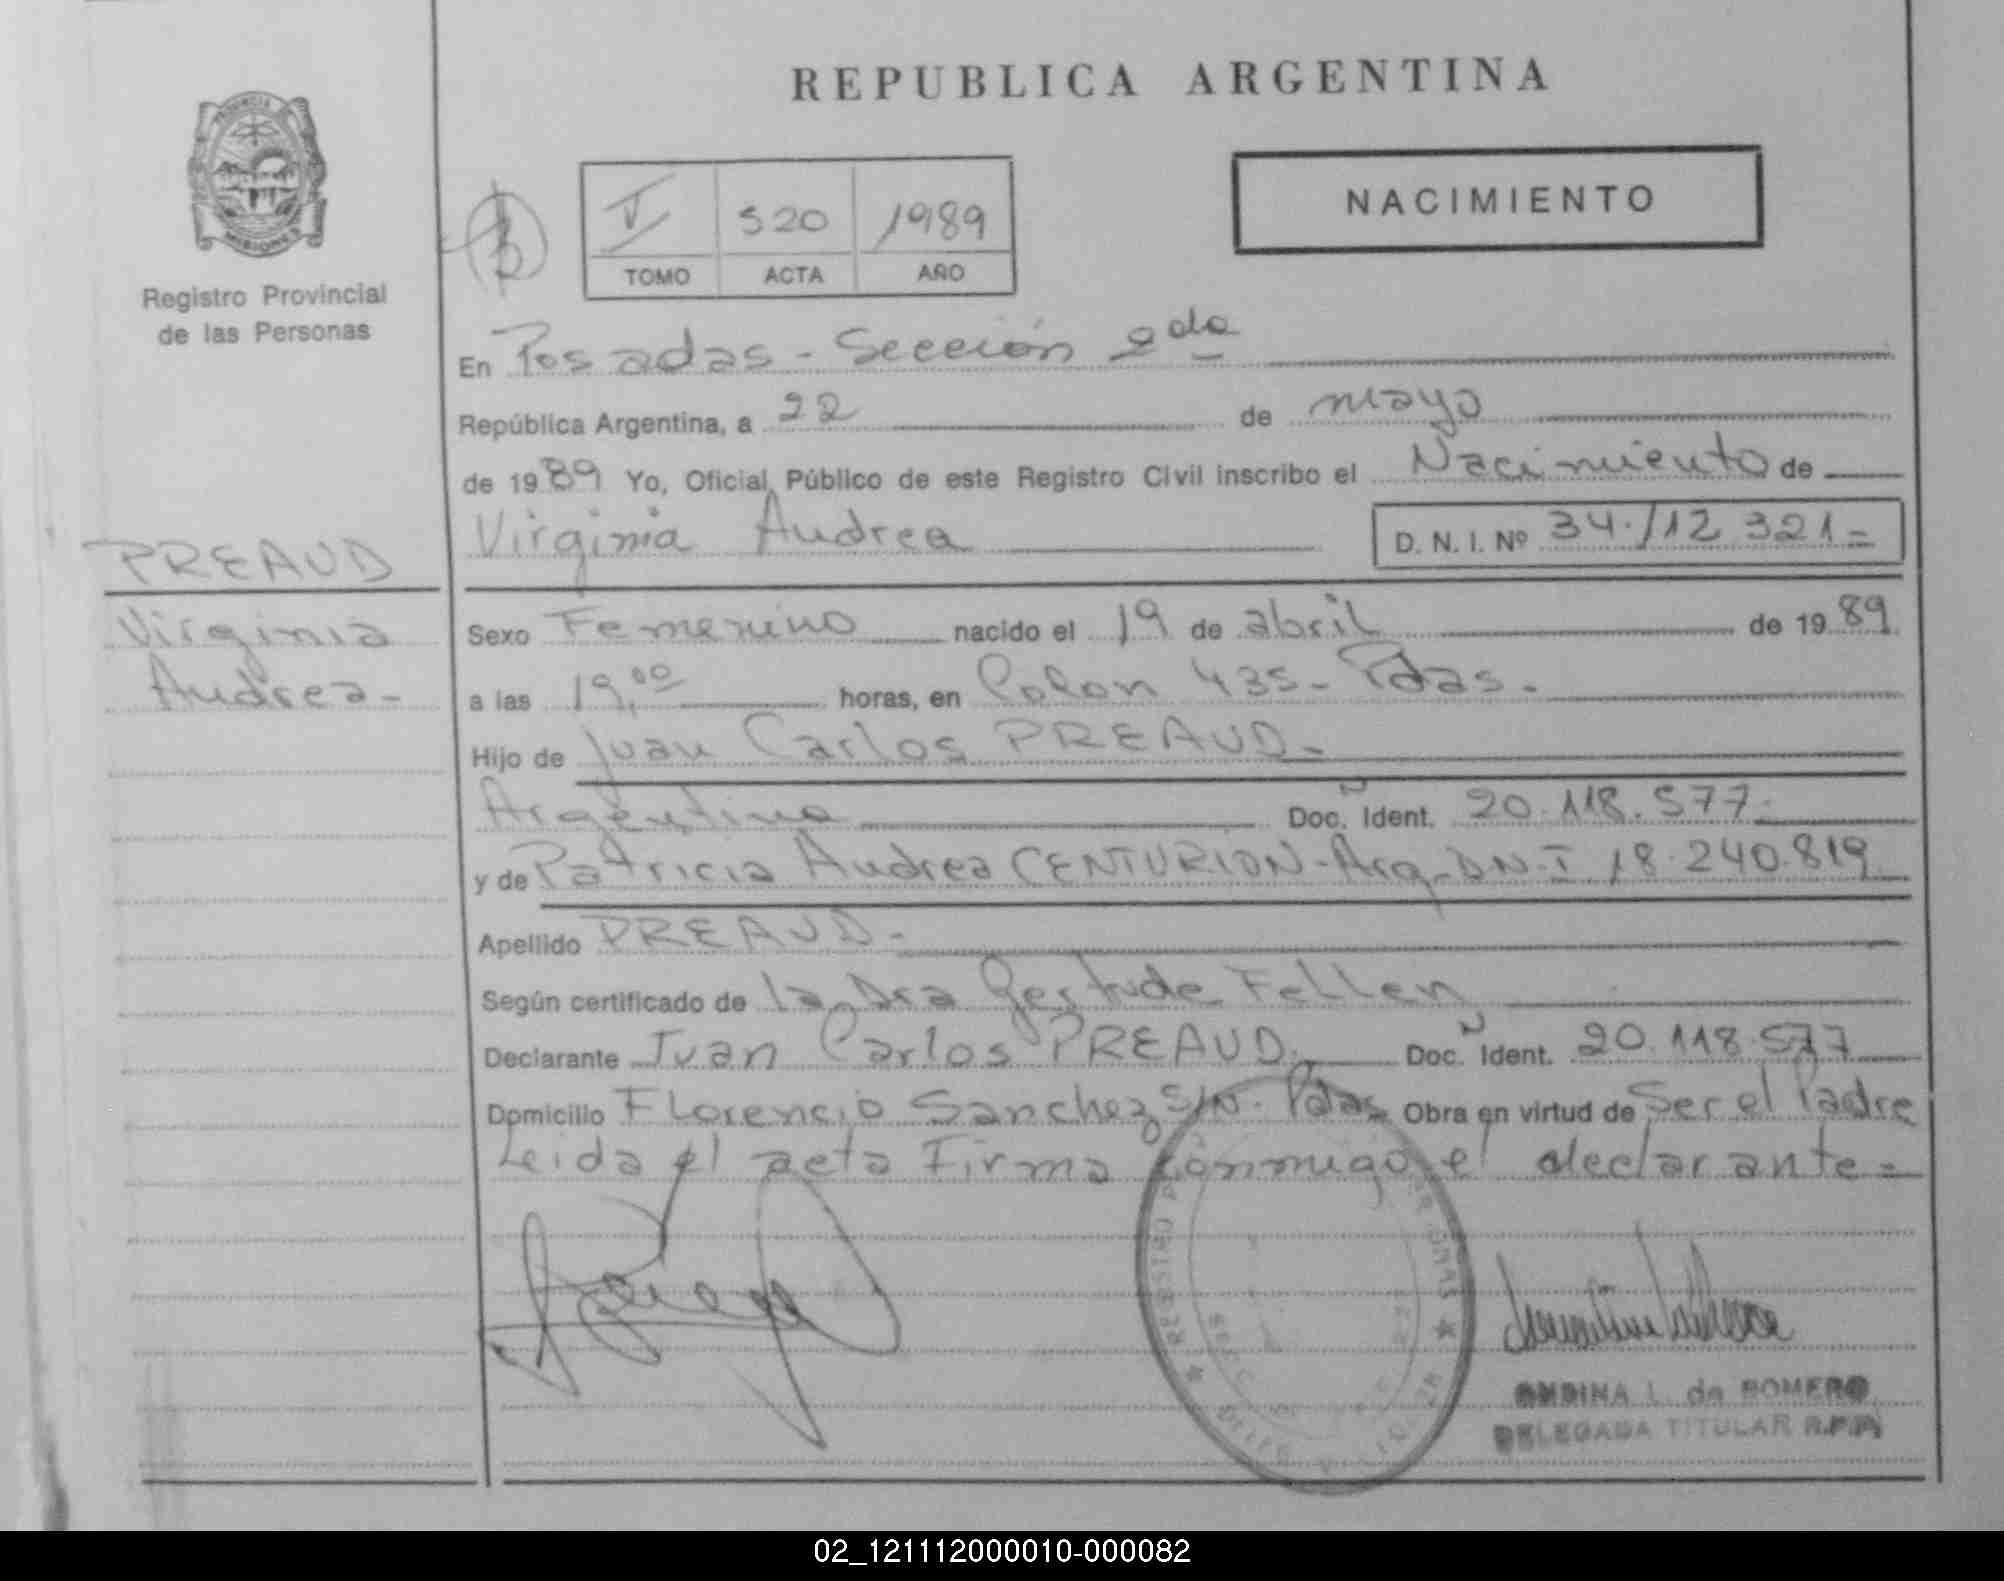 REPUBLICA ARGENTINA
PROVINCIA
MISIONES
Registro Provincial
de las Personas
V 520 1989
TOMO ACTA AÑO
NACIMIENTO
En Posadas - Sección 2da
República Argentina, a 22 de mayo
de 1989 Yo, Oficial Público de este Registro Civil inscribo el Nacimiento de
Virginia Andrea D. N. I. Nº 34./12 321=
PREAUD
Virginia
Andrea-
Sexo Femenino nacido el 19 de abril de 1989
a las 19,00 horas, en Colon 435- Pdas.
Hijo de Juan Carlos PREAUD-
Argentino Doc. Ident. 20.118.577-
y de Patricia Andrea CENTURION-Arg-DN-I 18.240.819
Apellido PREAUD-
Según certificado de la Dra Gertrude Fellen
Declarante Juan Carlos PREAUD. Doc. Ident. 20.118.577
Domicilio Florencio Sanchez S/N. Pdas Obra en virtud de Ser el Padre
Leida el acta Firma conmigo el declarante=
L. de ROMERO
DELEGADA TITULAR R.P.P.
02_121112000010-000082